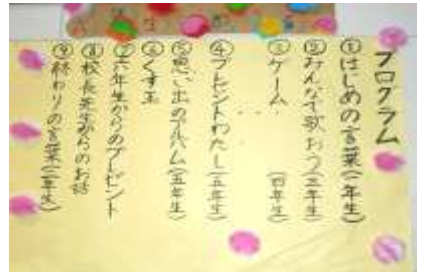 プログラム
①はじめの言葉(二年生)
②みんなで歌おう(三年生)
③ゲーム(四年生)
④プレゼントわたし(五年生)
⑤思い出のアルバム(五年生)
⑥くす玉
⑦六年生からのプレゼント
⑧校長先生からのお話
⑨終わりの言葉(二年生)